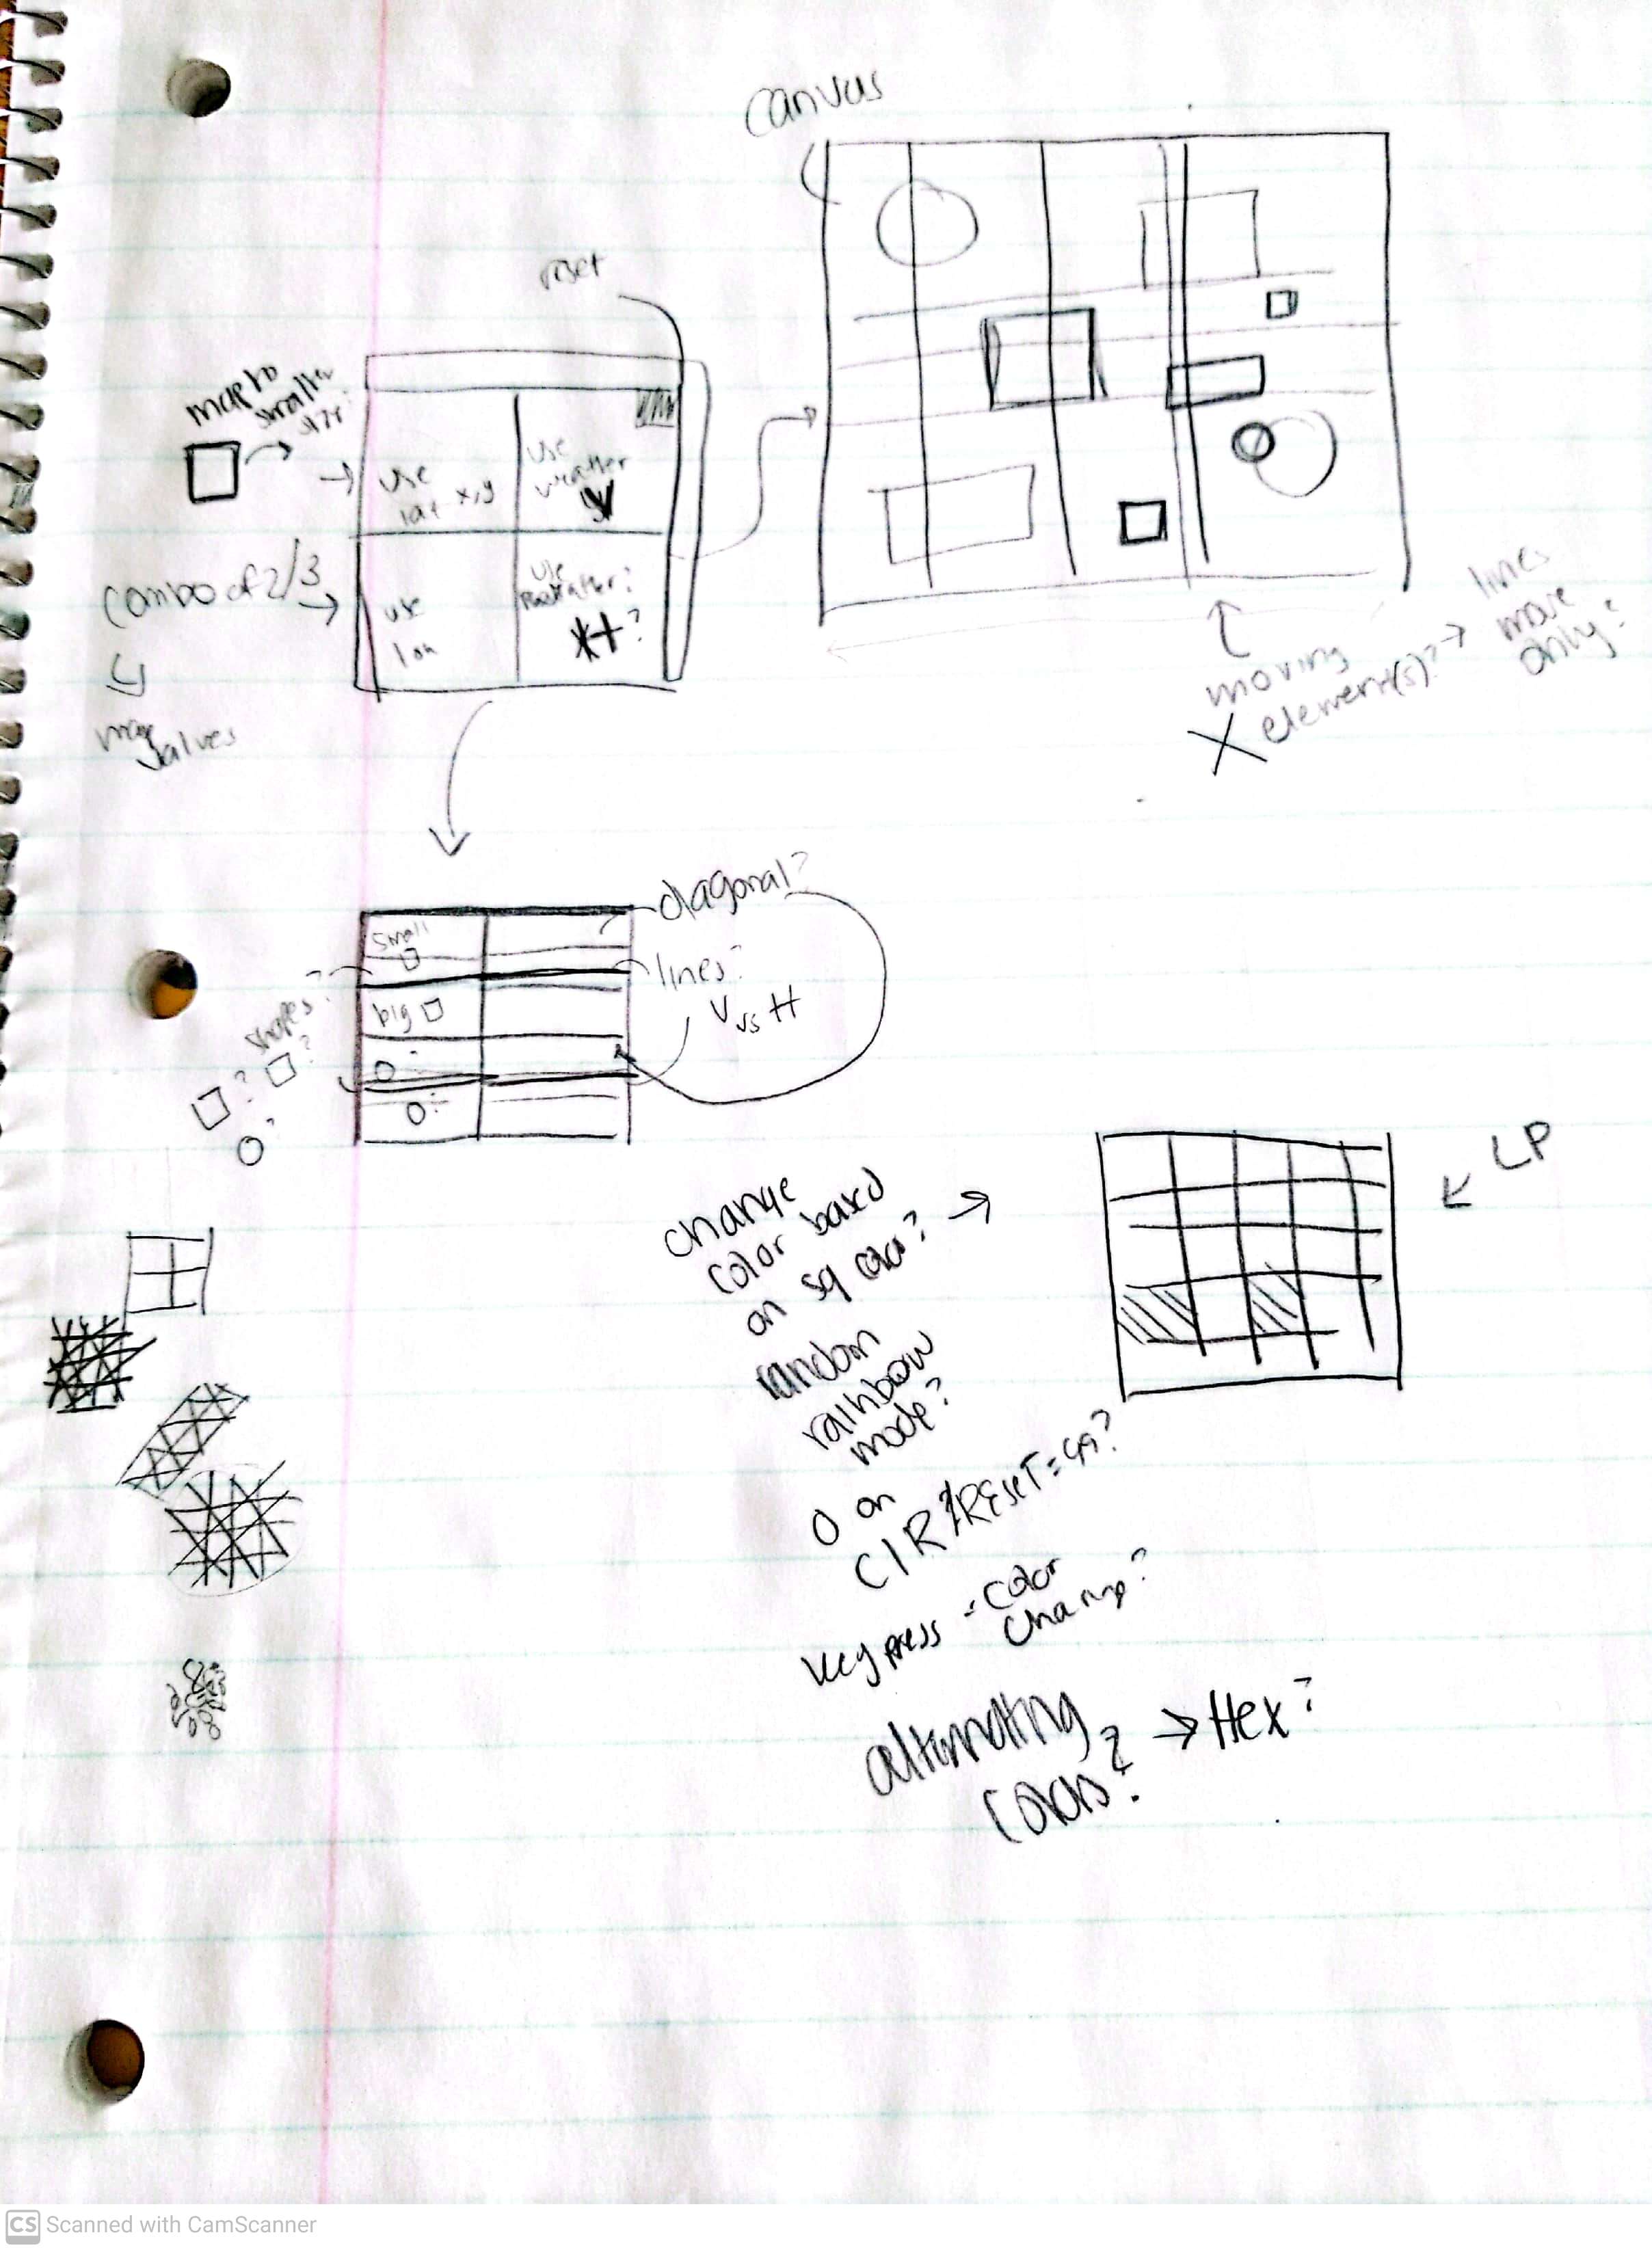 canvas
reset
map to
smaller
use
lat x,y
use
weather
combo of 2/3
use
lon
use
*+?
map
values
moving
X element(s)?
lines
move
only?
diagonal?
small
lines?
V vs H
big
shapes?
?
?
?
LP
change
color based
on sq color?
random
rainbow
mode?
O on
ClR/RESET=
key press = color
change?
alternating
colors?
→ Hex?
CS Scanned with CamScanner